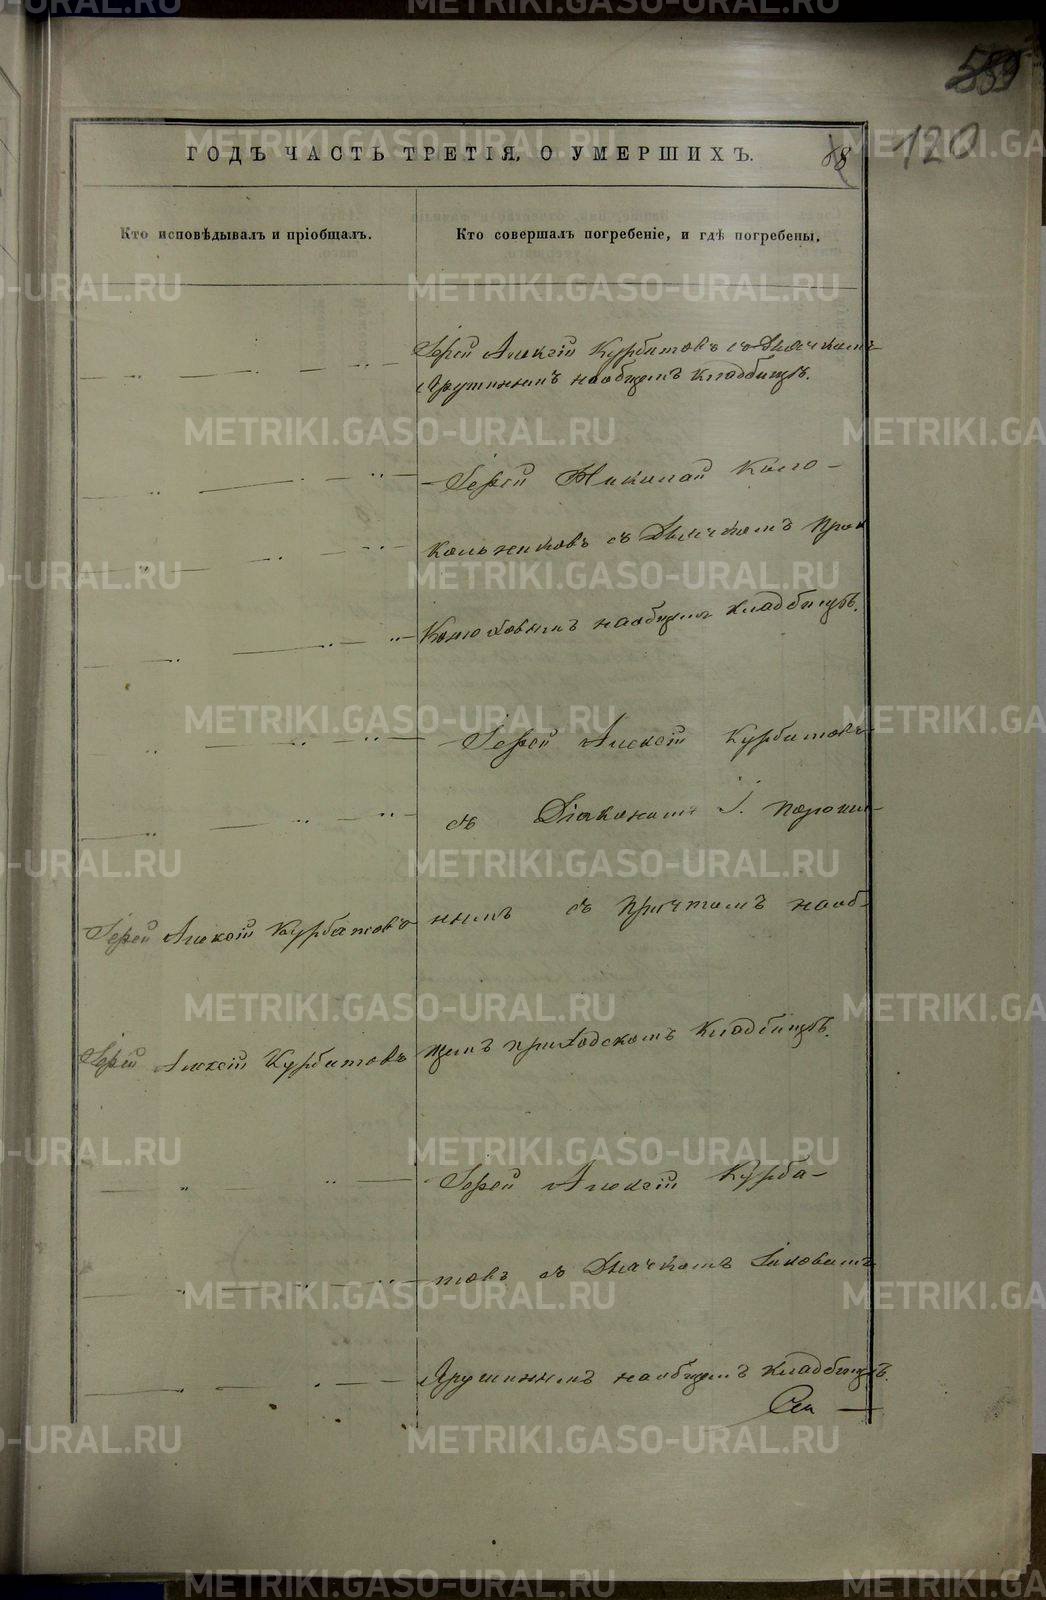 589
120
ГОДЪ ЧАСТЬ ТРЕТІЯ, О УМЕРШИХЪ.
88
Кто исповѣдывалъ и пріобщалъ.
Кто совершалъ погребеніе, и гдѣ погребены.
Іерей Алексій Курбатовъ съ Дьячкомъ
Ярушинымъ наобщемъ кладбищѣ.
Іерей Николай Коло-
кольниковъ съ Дьячкомъ
Конюховымъ наобщемъ кладбищѣ.
Іерей Алексій Курбатовъ
съ Діакономъ І.
нымъ съ причтомъ наоб-
Іерей Алексій Курбатовъ
щемъ приходскомъ кладбищѣ.
Іерей Алексій Курбатовъ
Іерей Алексій Курба-
товъ съ Дьячкомъ Іаковомъ
Ярушинымъ наобщемъ кладбищѣ.
METRIKI.GASO-URAL.RU